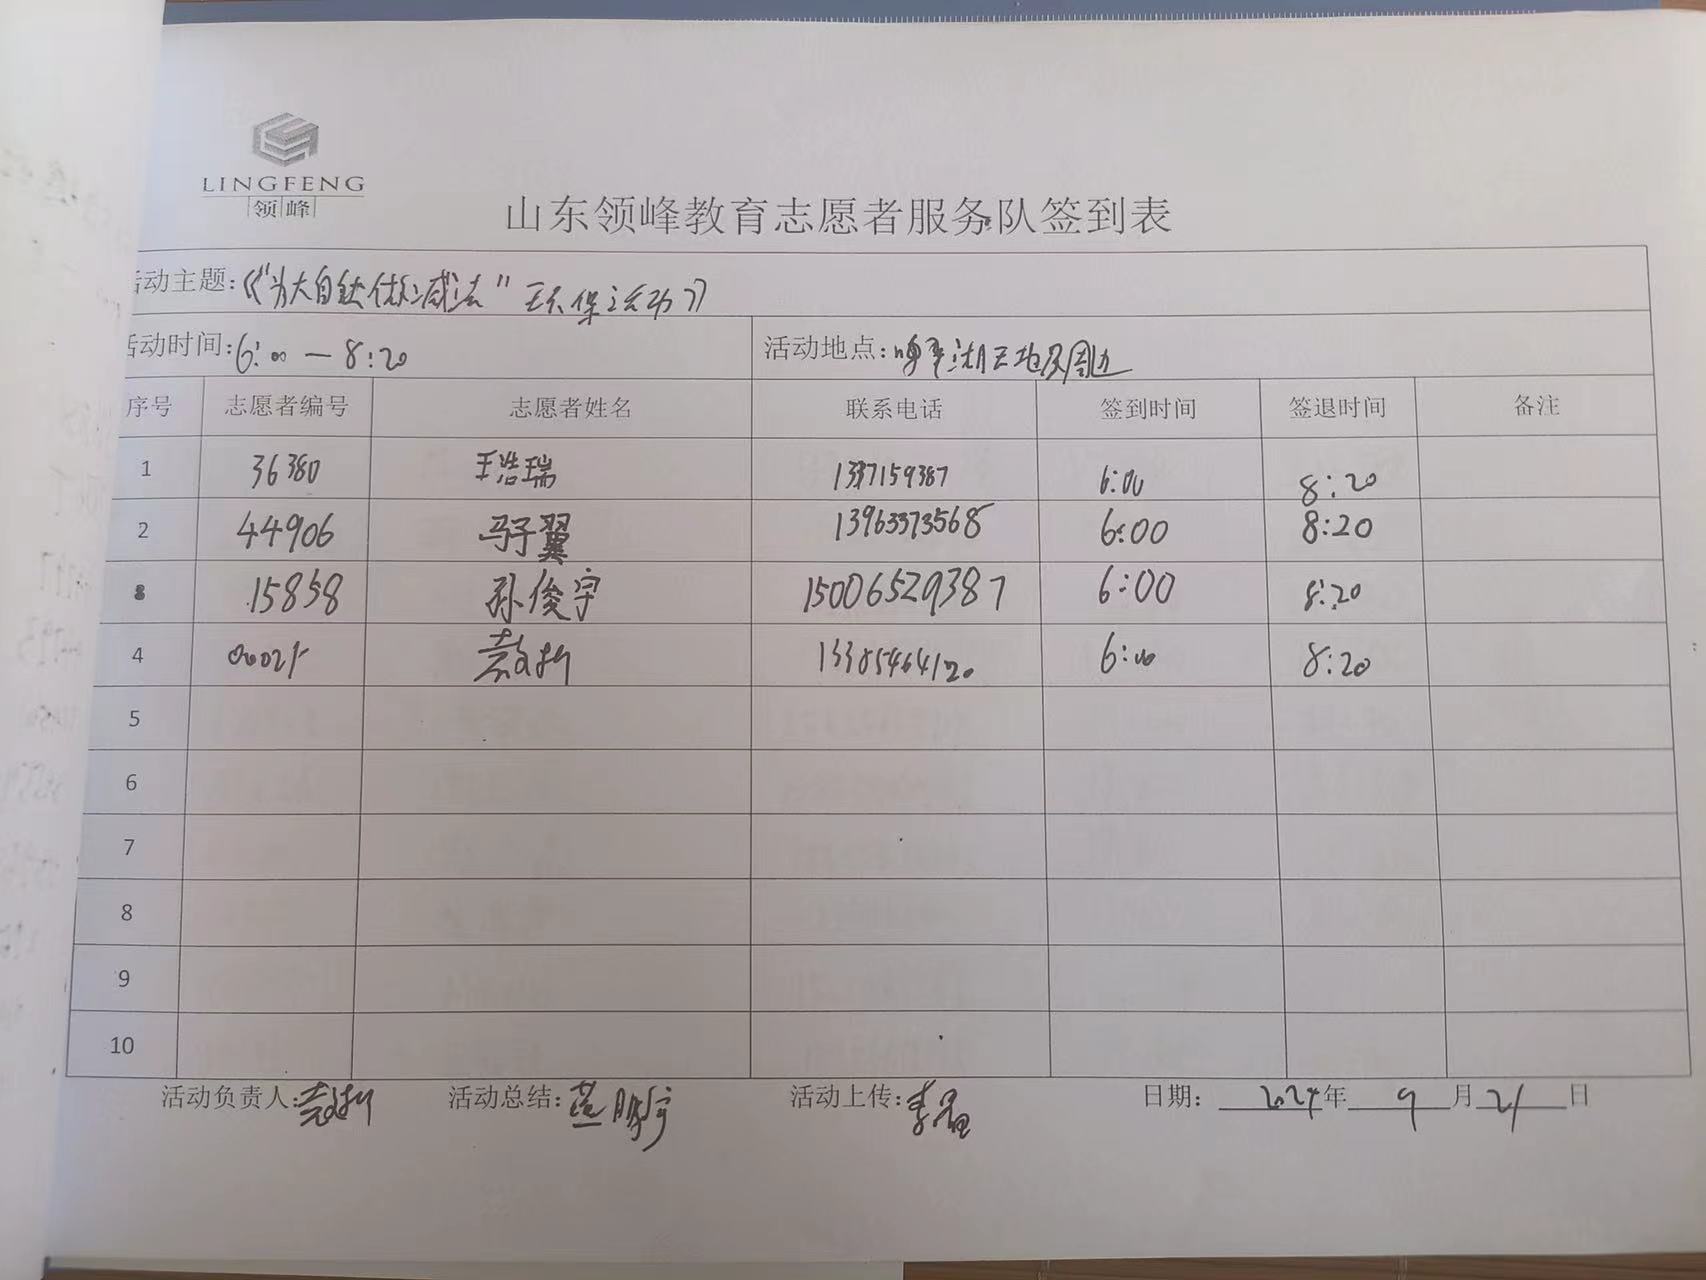 LINGFENG
领峰
山东领峰教育志愿者服务队签到表
活动主题:《“为大自然做减法”环保活动》
活动时间:6:00—8:20 活动地点:湖天地及周边
序号 志愿者编号 志愿者姓名 联系电话 签到时间 签退时间 备注
1 36380 王浩瑞 1337159387 6:00 8:20
2 44906 马子翼 13963373568 6:00 8:20
3 15858 孙俊宇 15006529387 6:00 8:20
4 00025 13385464120 6:00 8:20
5
6
7
8
9
10
活动负责人: 活动总结: 活动上传: 日期: 2024年 9月21日